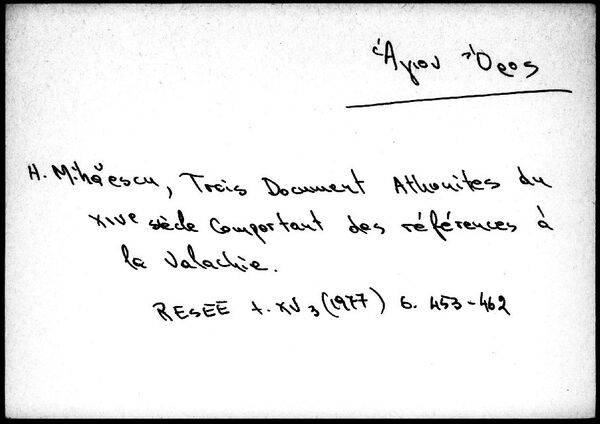 Ἅγιον Ὄρος
H. Mihăescu, Trois Document Athonites du
XIVe siècle Comportant des références à
la Valachie.
RESEE t. XV 3 (1977) σ. 453-462